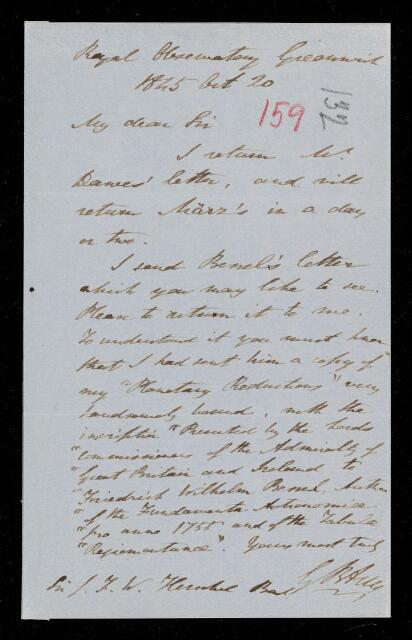 Royal Observatory Greenwich
1845 Oct 20
159
137
My dear Sir
I return Mr
Dawes' letter, and will
return März's in a day
or two.
I send Bessel's letter
which you may like to see.
Please to return it to me.
To understand it you must know
that I had sent him a copy of
my "Planetary Reductions" very
handsomely bound, with the
inscription "Presented by the Lords
"Commissioners of the Admiralty of
"Great Britain and Ireland to
"Friedrich Wilhelm Bessel, Author
"of the Fundamenta Astronomiae
"pro anno 1755 and of the Tabulae
"Regiomontanae". Yours most truly
G B Airy
Sir J. F. W. Herschel Bart